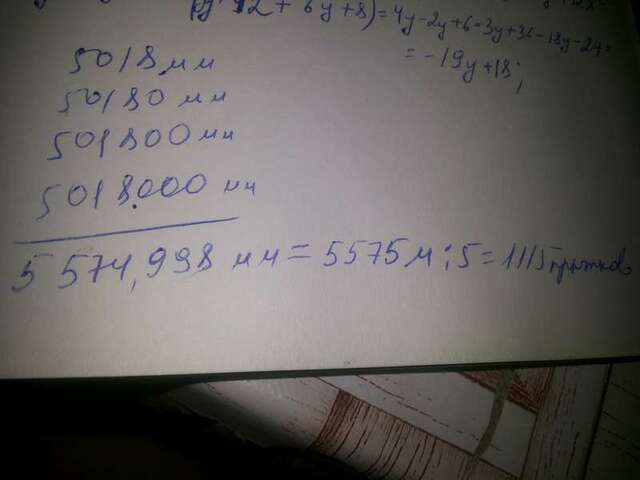 12 + 6y + 8) = 4y - 2y + 6 - 3y + 36 - 18y - 24 =
= -19y + 18;
5018 мм
50180 мм
501800 мм
5018000 мм
5 574,998 мм = 5575 м : 5 = 1115 прыжков